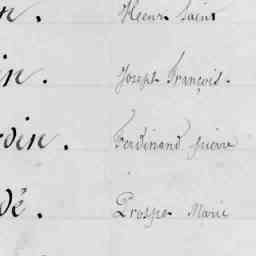 n. Henri Saint
in. Joseph François.
rdin. Ferdinand pierre
dé. Prosper Marie